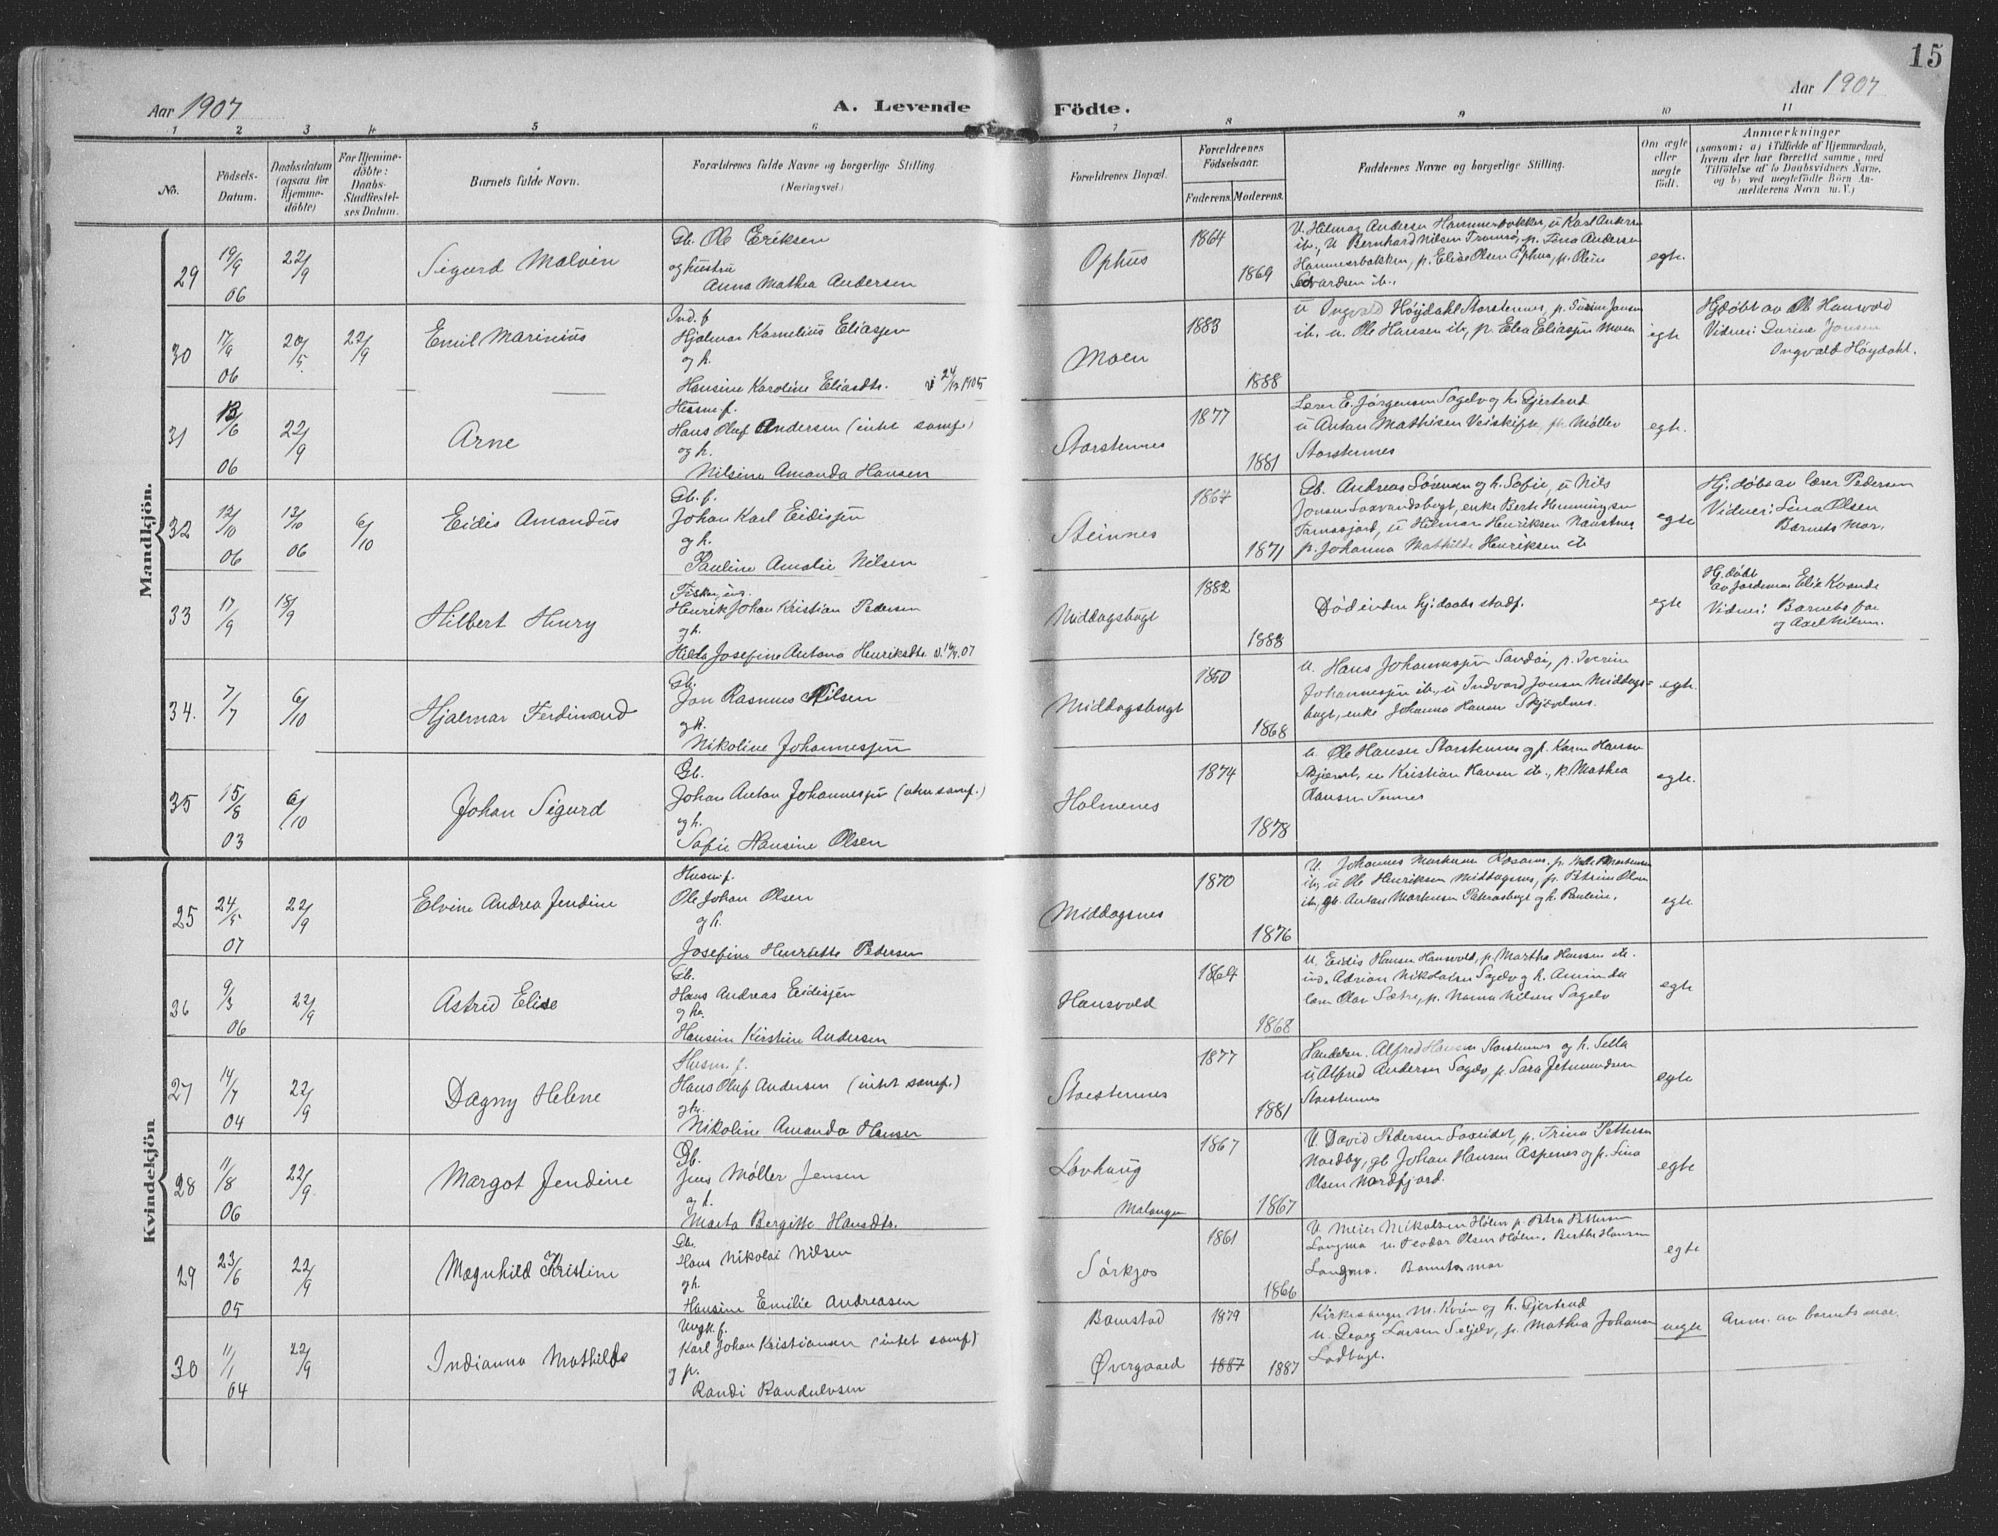 15
Aar 1907
A. Levende Födte.
Aar 1907
1 2 3 4 5 6 7 8 9 10 11
No.
Födsels-
Datum.
Daabsdatum
(ogsaa for
Hjemme-
döbte)
For Hjemme-
döbte:
Daabs-
Stadfæstel-
ses Datum.
Barnets fulde Navn.
Forældrenes fulde Navne og borgerlige Stilling
(Næringsvei.)
Forældrenes Bopæl.
Forældrenes
Födselsaar.
Faderens. Moderens.
Faddernes Navne og borgerlige Stilling.
Om ægte
eller
uægte
födt.
Anmærkninger
(saasom: a) i Tilfælde af Hjemmedaab,
hvem der har forrettet samme, med
Tilföielse af to Daabsvidners Navne,
og b) ved uægtefödte Börn An-
melderens Navn m. V.)
Mandkjön.
29
19/9
06
22/9
Sigurd Malvin
Gb. Ole Eriksen
og hustru
Anna Mathea Andersen
Ophus
1864
1869
U. Hilmar Andersen Hammerbakken, u Karl Andersen
ib., U Bernhard Nilsen Tromsø, p. Tina Andersen
Hammerbakken, p. Elise Olsen Ophus, p.
Edvardsen ib.,
egte.
30
17/9
06
20/5
22/9
Emil Marinius
Ind. f
Hjalmar Kornelius Eliasjen
og h.
Hansine Karoline Eliasdtr. v 24/12 1905
Moen
1883
1888
u Ingvald Høydahl Storstennes, p. Jensen
ib. u. Ole Hansen ib, p. Elea Eliasjen Moen
egte
Hjdøbt av Ole Hansvold
Vidner: Jensen
Ingvald Høydahl.
31
13/6
06
22/9
Arne
Husm f.
Hans Oluf Andersen (intet samf.)
og h.
Nilsine Amanda Hansen
Storstennes
1877
1881
Lærer E. Jørgensen Sagelv og h. Gjertrud
u Anton Mathisen Veiskifte, p. Møller
Storstennes
egte.
32
12/10
06
13/10
06
6/10
Eidis Amandus
Gb. f.
Johan Karl Eidisjen
og h.
Pauline Amalie Nilsen
Steinnes
1867
1871
Gb. Andreas Sørensen og h. Sofie, u Nils
Jonsen Laxvandsbugt, enke Berte Hemmingsen
u Hilmar Henriksen
p. Johanna Mathilde Henriksen ib
egte
Hj. døbt av lærer Pedersen
Vidner: Lina Olsen
Barnets mor.
33
17/9
18/9
Hilbert Henry
Fisker,
Henrik Johan Kristian Pedersen
og h.
Hilda Josefine Antona Henriksdtr. v. 07
Middagsbugt
1882
1888
Død inden hj.daabs stadf.
egte
Hj. døbt
av jordemor Elie Kvande
Vidner: Barnets far
og Axel Nilsen.
34.
7/7
6/10
Hjalmar Ferdinand
Gb.
Jon Rasmus Nilsen
og h.
Nikoline Johannesjen
Middagsbugt
1850
1868
U. Hans Johannesjen Sandøi, p. Iverine
Johannesjen ib., u Indvard Jonsen Middags-
bugt, enke Johanna Hansen Skjævelnes.
egte.
35
15/8
03
6/10
Johan Sigurd
Gb.
Johan Anton Johannesjen (uten samf.)
og h.
Sofie Hansine Olsen
Holmenes
1874
1878
U. Ole Hansen Storstennes og p. Karen Hansen
u Kristian Hansen ib., p. Mathea
Hansen Tennes
egte.
Kvindekjön
25
24/5
07
22/9
Elvine Andrea Jendine
Husm. f.
Ole Johan Olsen
og h.
Josefine Henriette Pedersen
Middagsnes
1870
1876
U. Johannes Martinsen p. Mortensen
ib, u Ole Henriksen Middagsnes, p. Petrine Olsen
ib, gb. Anton Mortensen og h. Pauline.
egte
26
9/3
06
22/9
Astrid Elise
Gb.
Hans Andreas Eidisjen
og h.
Hansine Kirstine Andersen
Hansvold
1864
1868
U. Eidis Hansen Hansvold, p. Martha Hansen ib.
ind. Adrian Nikolaisen Sagelv og h. Aminda
lærer Olav Sætre, p. Nanna Nilsen Sagelv
egte
27
14/7
04
22/9
Dagny Helene
Husm. f.
Hans Oluf Andersen (intet samf.)
og h.
Nikoline Amanda Hansen
Storstennes
1877
1881
Handelsm. Alfred Hansen Storstennes og h. Sella
U Alfred Andersen Sagelv, p. Sara Jetmundsen
Storstennes
egte
28
11/8
06
22/9
Margot Jendine
Gb.
Jens Møller Jensen
og h.
Marta Bergitte Hansdtr.
Løvhaug
Malangen
1867
1867
U. David Pedersen Laxeidet, p. Trina Pettersen
Nordby, gb. Johan Hansen Aspenes og p. Lina
Olsen Nordfjord.
egte
29
23/6
05
22/9
Magnhild Kristine
Gb.
Hans Nikolai Nilsen
og h.
Hansine Emilie Andreasen
Sørkjos
1861
1866
U. Meier Nikolaisen Holm p. Petra Pettersen
Langmo u. Teodor Olsen Holm. Berthe Hansen
Langmo. Barnets mor
egte
30
11/1
04
22/9
Indianna Mathilde
Ungk. f.
Karl Johan Kristiansen (intet samf)
og p.
Randi Randulvsen
Bomstad
Øvergaard
1879
1887 1887
Kirkesanger M. Kvien og h. Gjertrud
u. Georg Larsen Seljelv, p. Mathea Johansen
Ladbugt.
uegte
Anm. av barnets mor.